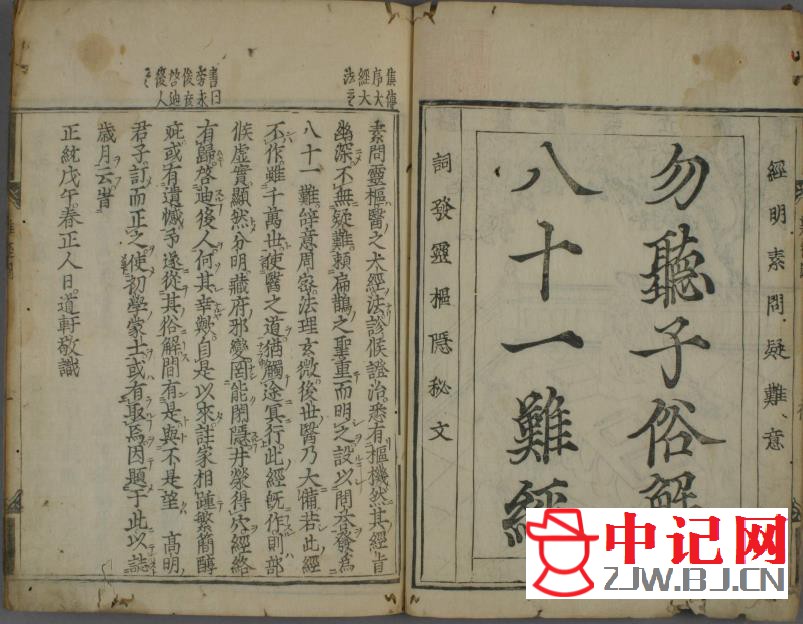 經明素問疑難意
勿聽子俗解
八十一難經
詞發靈樞隱秘文
素問靈樞醫之大經法診候證治悉有樞機然其經旨
幽深不無疑難賴扁鵲之聖重而明之設以問荅發為
八十一難辞意周密法理玄微後世醫乃大備若此經
不作雖千萬世使醫之道猶觸途冥行此經既作則部
候虛實顯然分明藏府邪變罔能閉隱井榮得穴經絡
有歸啓迪後人何其幸歟自是以來註家相踵繁簡醇
疵或有遺憾予遂從其俗解間有是與不是望 高明
君子訂而正之使初學蒙士或有取焉因題于此以誌
歲月云旹
正統戊午春正人日道軒敬識
序大
經大
法之
書曰
後人
中记网
ZJW.BJ.CN